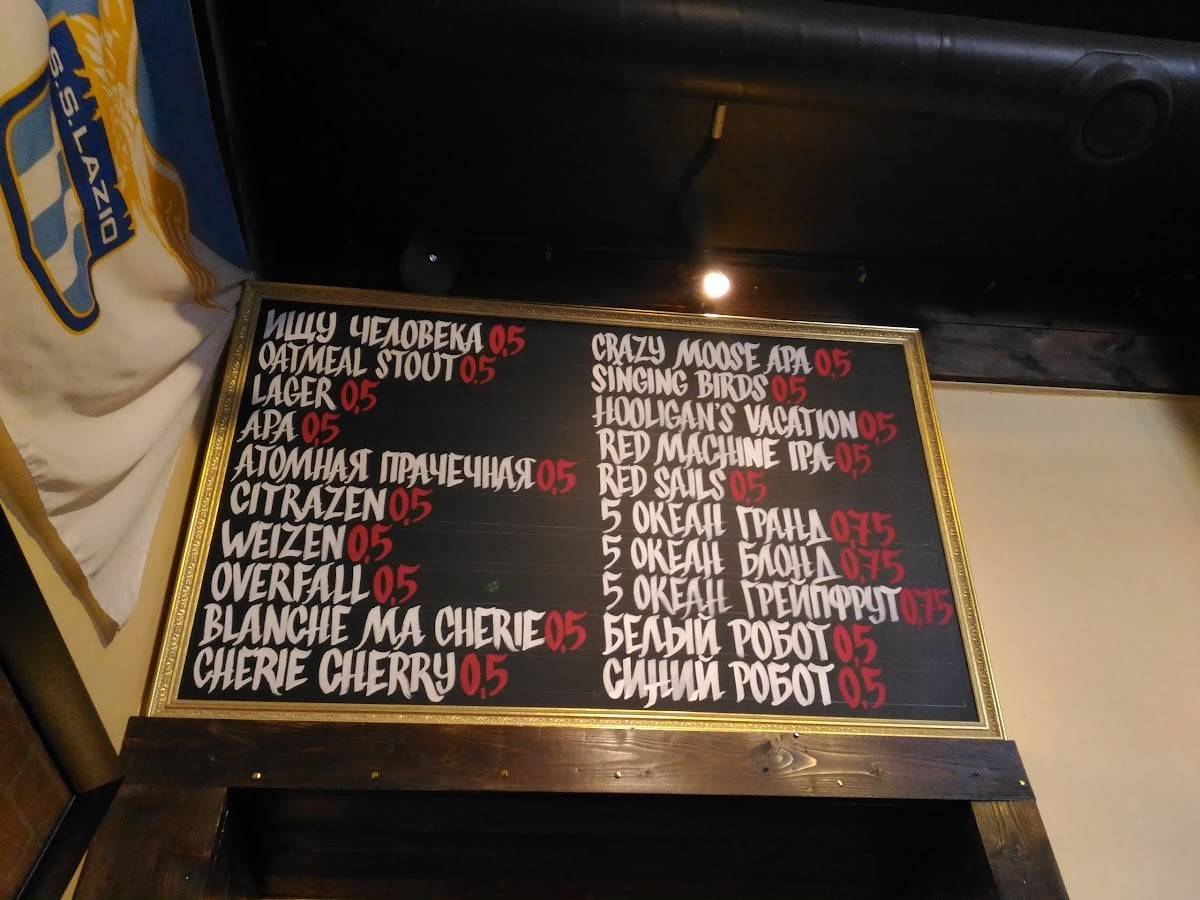 S.S.LAZIO
ИЩУ ЧЕЛОВЕКА 0,5
OATMEAL STOUT 0,5
LAGER 0,5
APA 0,5
АТОМНАЯ ПРАЧЕЧНАЯ 0,5
CITRAZEN 0,5
WEIZEN 0,5
OVERFALL 0,5
BLANCHE MA CHERIE 0,5
CHERIE CHERRY 0,5
CRAZY MOOSE APA 0,5
SINGING BIRDS 0,5
HOOLIGAN'S VACATION 0,5
RED MACHINE IPA 0,5
RED SAILS 0,5
5 ОКЕАН ГРАНД 0,75
5 ОКЕАН БЛОНД 0,75
5 ОКЕАН ГРЕЙПФРУТ 0,75
БЕЛЫЙ РОБОТ 0,5
СИНИЙ РОБОТ 0,5